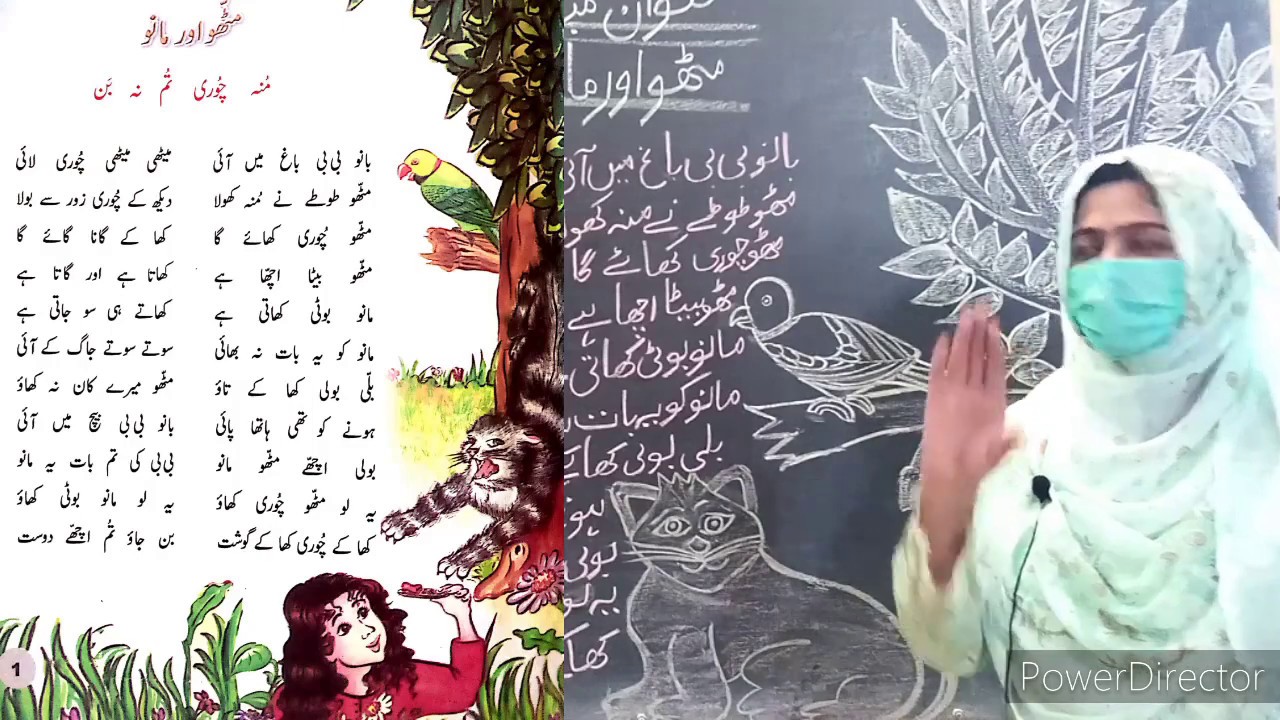 مٹھو اور مانو
مُنہ چُوری تُم نہ بَن
بانو بی بی باغ میں آئی میٹھی میٹھی چُوری لائی
مٹھو طوطے نے مُنہ کھولا دیکھ کے چُوری زور سے بولا
مٹھو چُوری کھائے گا کھا کے گانا گائے گا
مٹھو بیٹا اچھّا ہے کھاتا ہے اور گاتا ہے
مانو بوٹی کھاتی ہے کھاتے ہی سو جاتی ہے
مانو کو یہ بات نہ بھائی سوتے سوتے جاگ کے آئی
بلّی بولی کھا کے تاؤ مٹھو میرے کان نہ کھاؤ
ہونے کو تھی ہاتھا پائی بانو بی بی بیچ میں آئی
بولی اچھّے مٹھو مانو بی بی کی تم بات یہ مانو
یہ لو مٹھو چُوری کھاؤ یہ لو مانو بوٹی کھاؤ
کھا کے چُوری کھا کے گوشت بن جاؤ تُم اچھّے دوست
1
مٹھو اور ما
بانو بی بی باغ میں آئی
مٹھو طوطے نے منہ کھو
مٹھو چوری کھائے گا
مٹھو بیٹا اچھا ہے
مانو بوٹی کھاتی
مانو کو یہ بات
بلی بولی کھا کے
ہو
بولی
یہ لو
کھا
PowerDirector